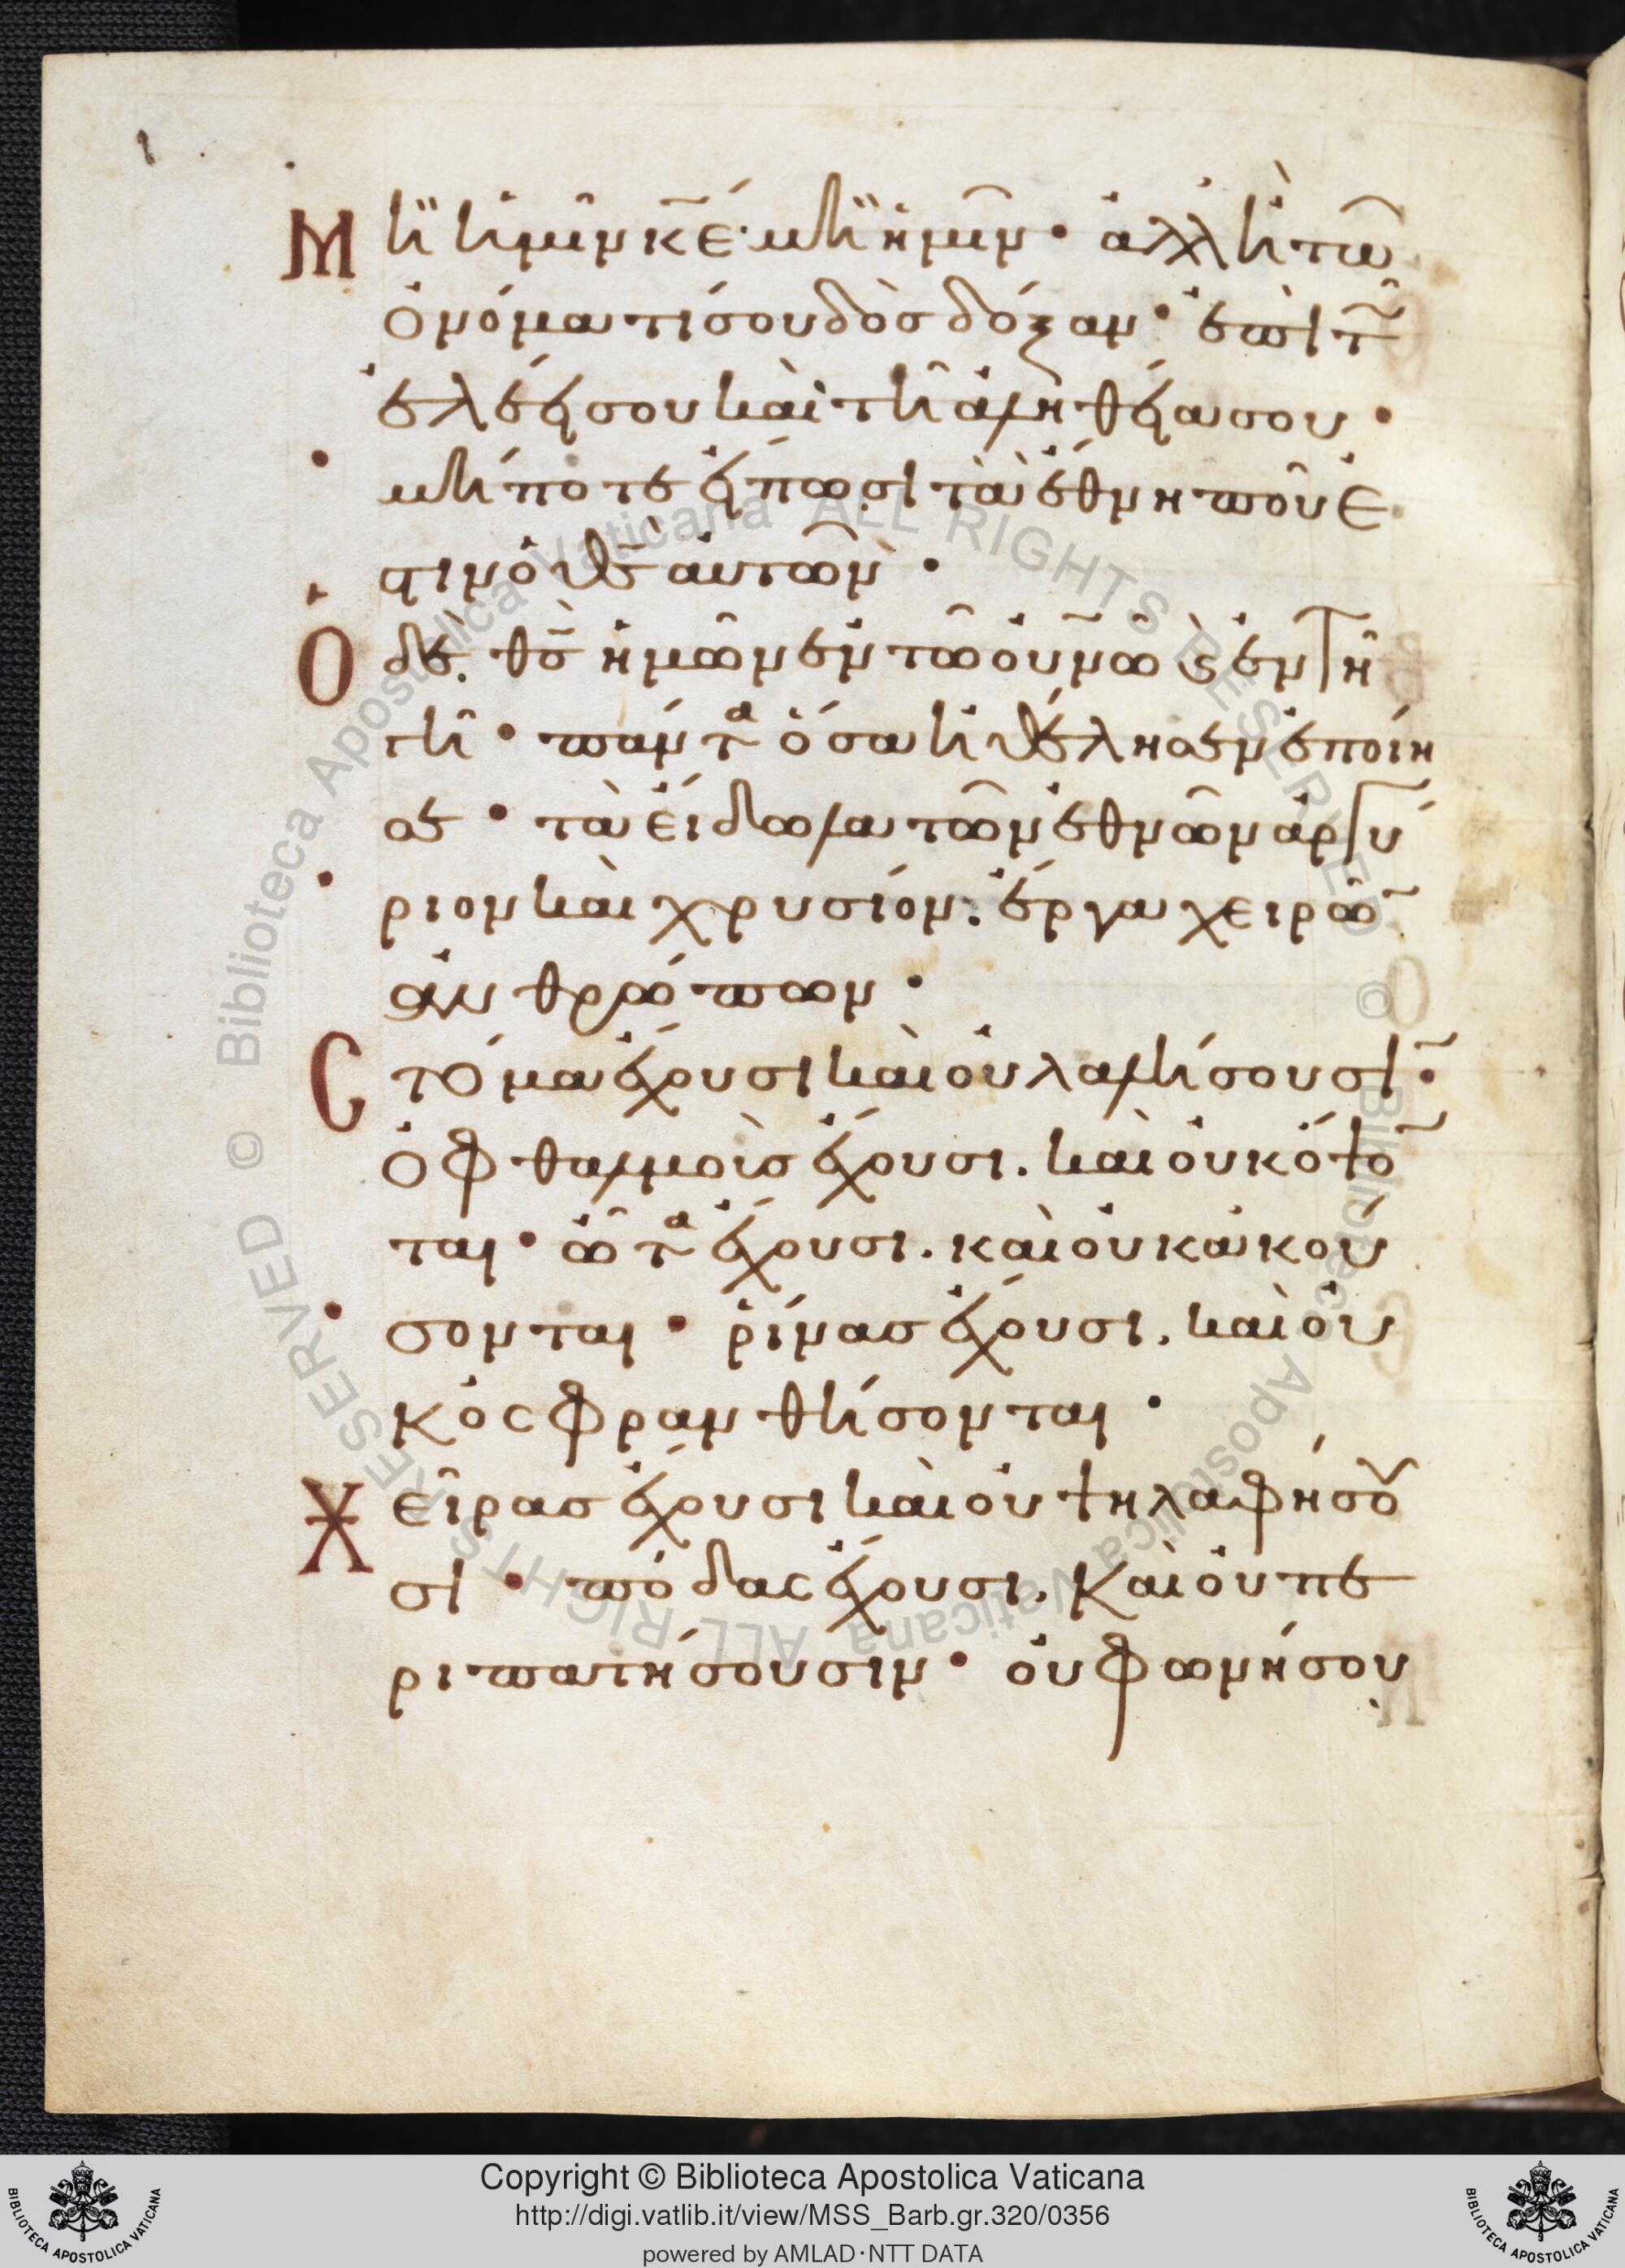 Μὴ ἡμῖν κ̅ε̅· μὴ ἡμῖν· ἀλλ ἢ τῶ
ὀνόματί σου δὸσ δόξαν· ἐπὶ τ̅
ἐλέει σου καὶ τῆ ἀληθεία σου·
μήποτε εἴπωσι τὰ ἔθνη ποῦ ἐ
στιν ὁ θ̅σ̅ αὐτῶν·
Ὁ δὲ θ̅σ̅ ἡμῶν ἐν τῶ οὐ̅νῶ ϗ ἐν τῆ γῆ
πάντα ὅσα ἠθέλησεν ἐποίη
σε· τὰ εἴδωλα τῶν ἐθνῶν ἀργύ
ριον καὶ χρυσίον· ἔργα χειρῶ̅
ἀνθρώπων·
Στόμα ἔχουσι καὶ οὐ λαλήσουσι·
ὀφθαλμοὺσ ἔχουσι. καὶ οὐκ ὄψο̅
ται· ὦτα ἔχουσι. καὶ οὐκ ἀκού
σονται· ῥίνασ ἔχουσι. καὶ οὐ
κ ὀσφρανθήσονται·
Χεῖρασ ἔχουσι καὶ οὐ ψηλαφήσου
σι· πόδασ ἔχουσι. καὶ οὐ πε
ριπατήσουσιν· οὐ φωνήσου
Copyright © Biblioteca Apostolica Vaticana
http://digi.vatlib.it/view/MSS_Barb.gr.320/0356
powered by AMLAD·NTT DATA